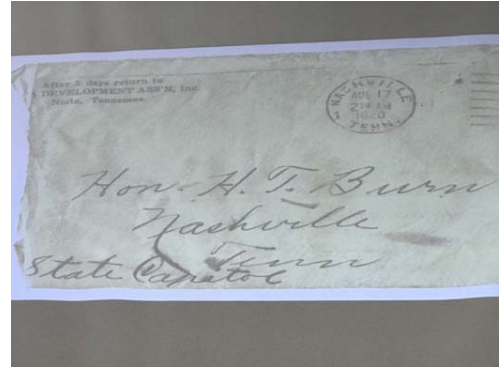 After 5 days return to
DEVELOPMENT ASS'N, Inc.
Niota, Tennessee.
NASHVILLE
AUG 17
AM
1920
TENN.
Hon. H. T. Burn
Nashville
Tenn
State Capitol